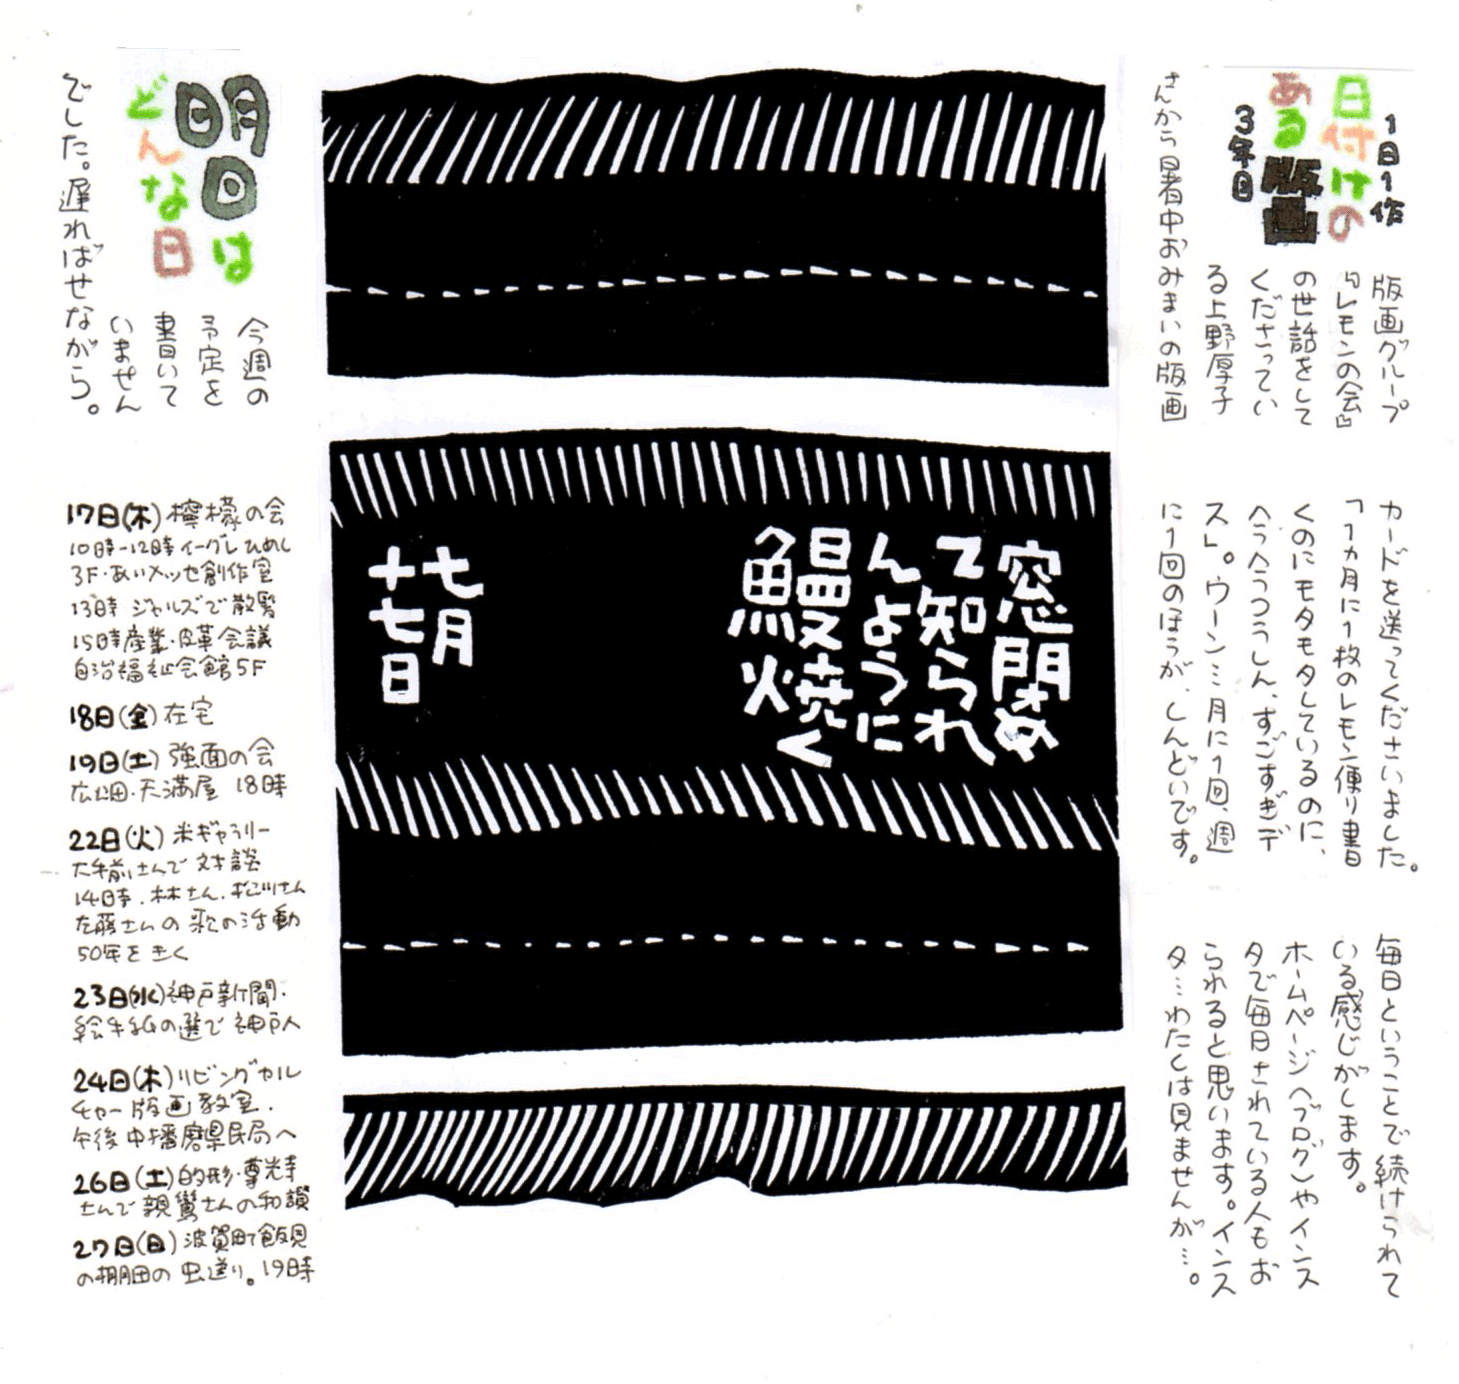 1日1作
日付けの
ある版画
3年目
版画グループ
『レモンの会』
の世話をして
くださってい
る上野厚子
さんから暑中おみまいの版画
カードを送ってくださいました。
「1ヵ月に1枚のレモン便り書
くのにモタモタしているのに、
へうへうつうしん、すごすぎデ
ス」。ウーン…月に1回、週
に1回のほうが、しんどいです。
毎日ということで続けられて
いる感じがします。
ホームページ(ブログ)やインス
タで毎日されている人もお
られると思います。インス
タ…わたくは見ませんが…。
窓閉め
て知られ
んように
鰻焼く
七月
十七日
明日は
どんな日
今週の
予定を
書いて
いません
でした。遅ればせながら。
17日(木) 檸檬の会
10時-12時 イーグレひめじ
3F・あいメッセ創作室
13時 ジャルズで散髪
15時産業・皮革会議
自治福祉会館5F
18日(金) 在宅
19日(土) 強面の会
広畑・天満屋 18時
22日(火) 米ギャラリー
大手前さんで 対談
14時.林さん.
左藤さんの 歌の活動
50年をきく
23日(水) 神戸新聞・
絵手紙の選で 神戸へ
24日(木) リビングカル
チャー版画教室.
午後 中播磨県民局へ
26日(土) 的形・尊光寺
さんで 親鸞さんの和讃
27日(日) 波賀町飯見
の棚田の 虫送り。19時